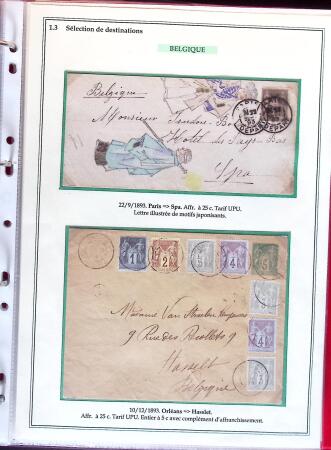 1.3 Sélection de destinations
BELGIQUE
Belgique
PARIS
DEPART
Monsieur
Hotel des Pays-Bas
Spa
22/9/1893. Paris => Spa. Affr. à 25 c. Tarif UPU.
Lettre illustrée de motifs japonisants.
1 2 4 5
Madame Van
9 Rue des Récollets 9
Hasselt
4
Belgique
10/12/1893. Orléans => Hasselt.
Aff. à 25 c. Tarif UPU. Entier à 5 c avec complément d'affranchissement.